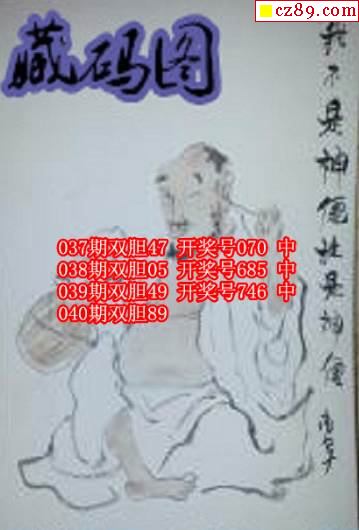 cz89.com
藏码图
我不是神僊谁是神僊
037期双胆47 开奖号070 中
038期双胆05 开奖号685 中
039期双胆49 开奖号746 中
040期双胆89